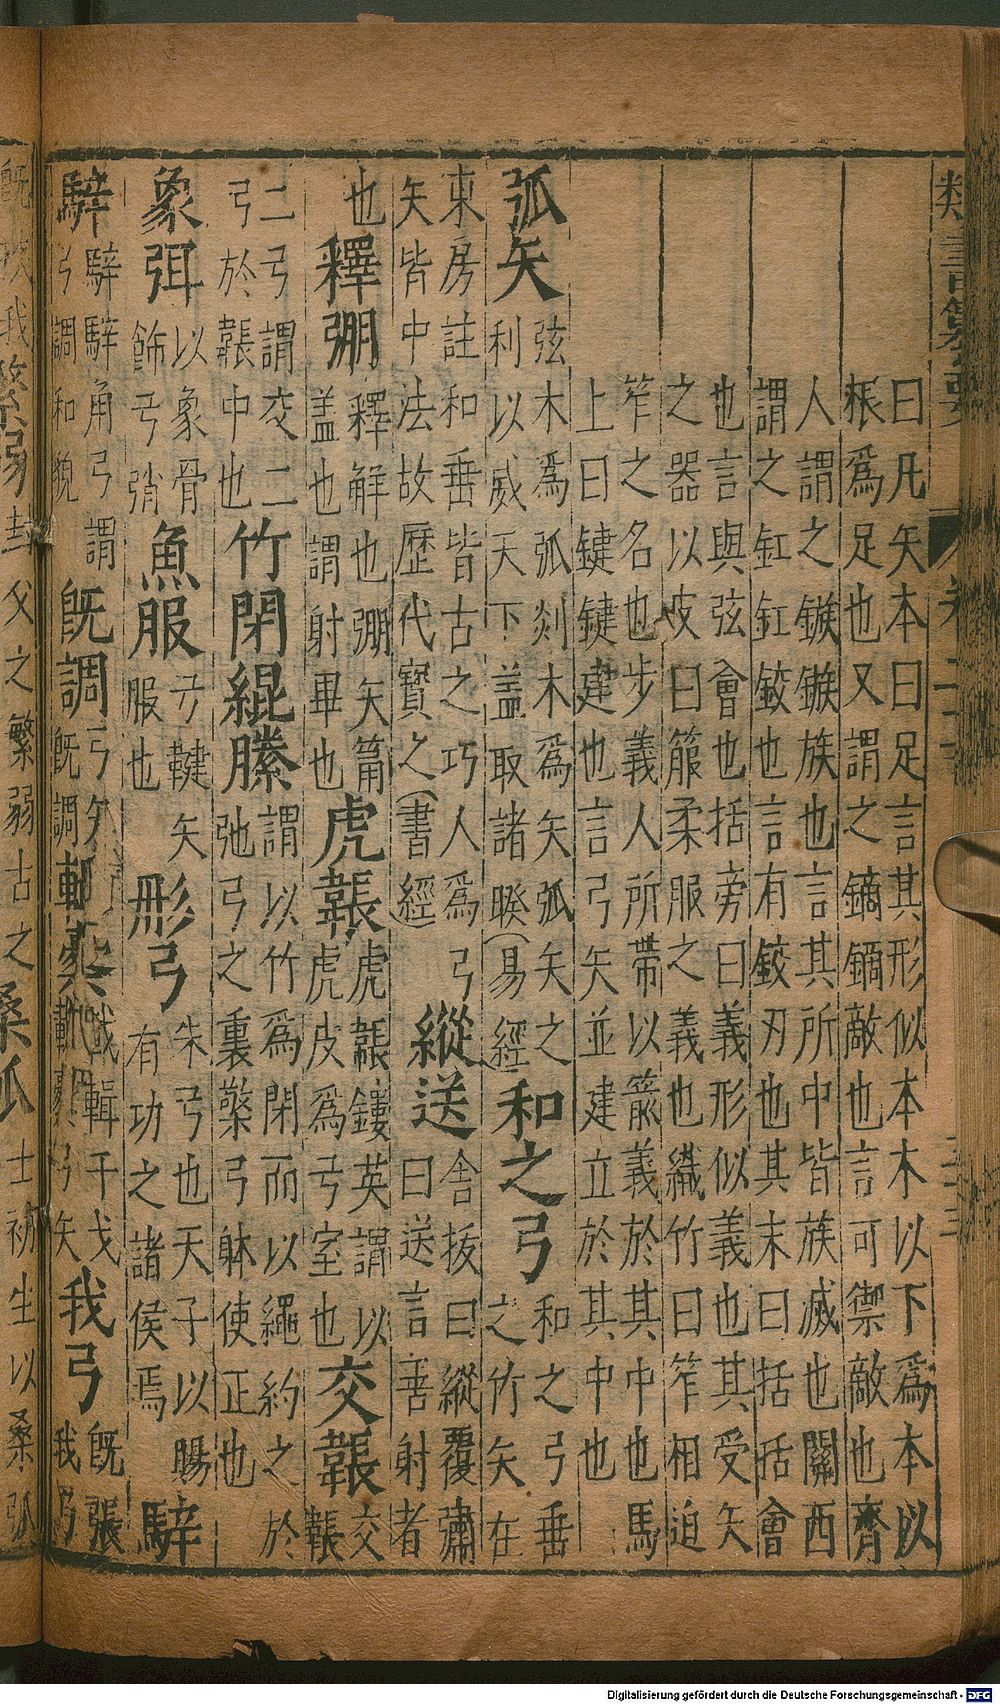 曰凡矢本曰足言其形似本木以下爲本以
根爲足也又謂之鏑鏑敵也言可禦敵也齊
人謂之鏃鏃族也言其所中皆族滅也關西
謂之釭釭鉸也言有鉸刃也其末曰括括會
也言與弦會也括旁曰義形似義也其受矢
之器以皮曰箙柔服之義也織竹曰笮相迫
笮之名也步義人所帶以箭義於其中也馬
上曰鍵鍵建也言弓矢並建立於其中也
弧矢
弦木爲弧剡木爲矢弧矢之
利以威天下蓋取諸睽(易經)
和之弓
和之弓垂
之竹矢在
東房註和垂皆古之巧人爲弓
矢皆中法故歷代寶之(書經)
縱送
舍拔曰縱覆彇
曰送言善射者
也
釋掤
釋解也掤矢筩
盖也謂射畢也
虎韔
虎韔鏤英謂以
虎皮爲弓室也
交韔
交
韔
二弓謂交二
弓於韔中也
竹閉緄縢
謂以竹爲閉而以繩約之於
弛弓之裏檠弓躰使正也
象弭
以象骨
飾弓弰
魚服
弓鞬矢
服也
彤弓
朱弓也天子以賜
有功之諸侯焉
騂
騂
騂騂角弓謂
弓調和貌
旣調
弓矢
旣調
載櫜
戢輯干戈
載櫜弓矢
我弓
旣張
我弓
繁弱
封父之繁弱古之
桑弧
士初生以桑弧
類書纂要
Digitalisierung gefördert durch die Deutsche Forschungsgemeinschaft - DFG